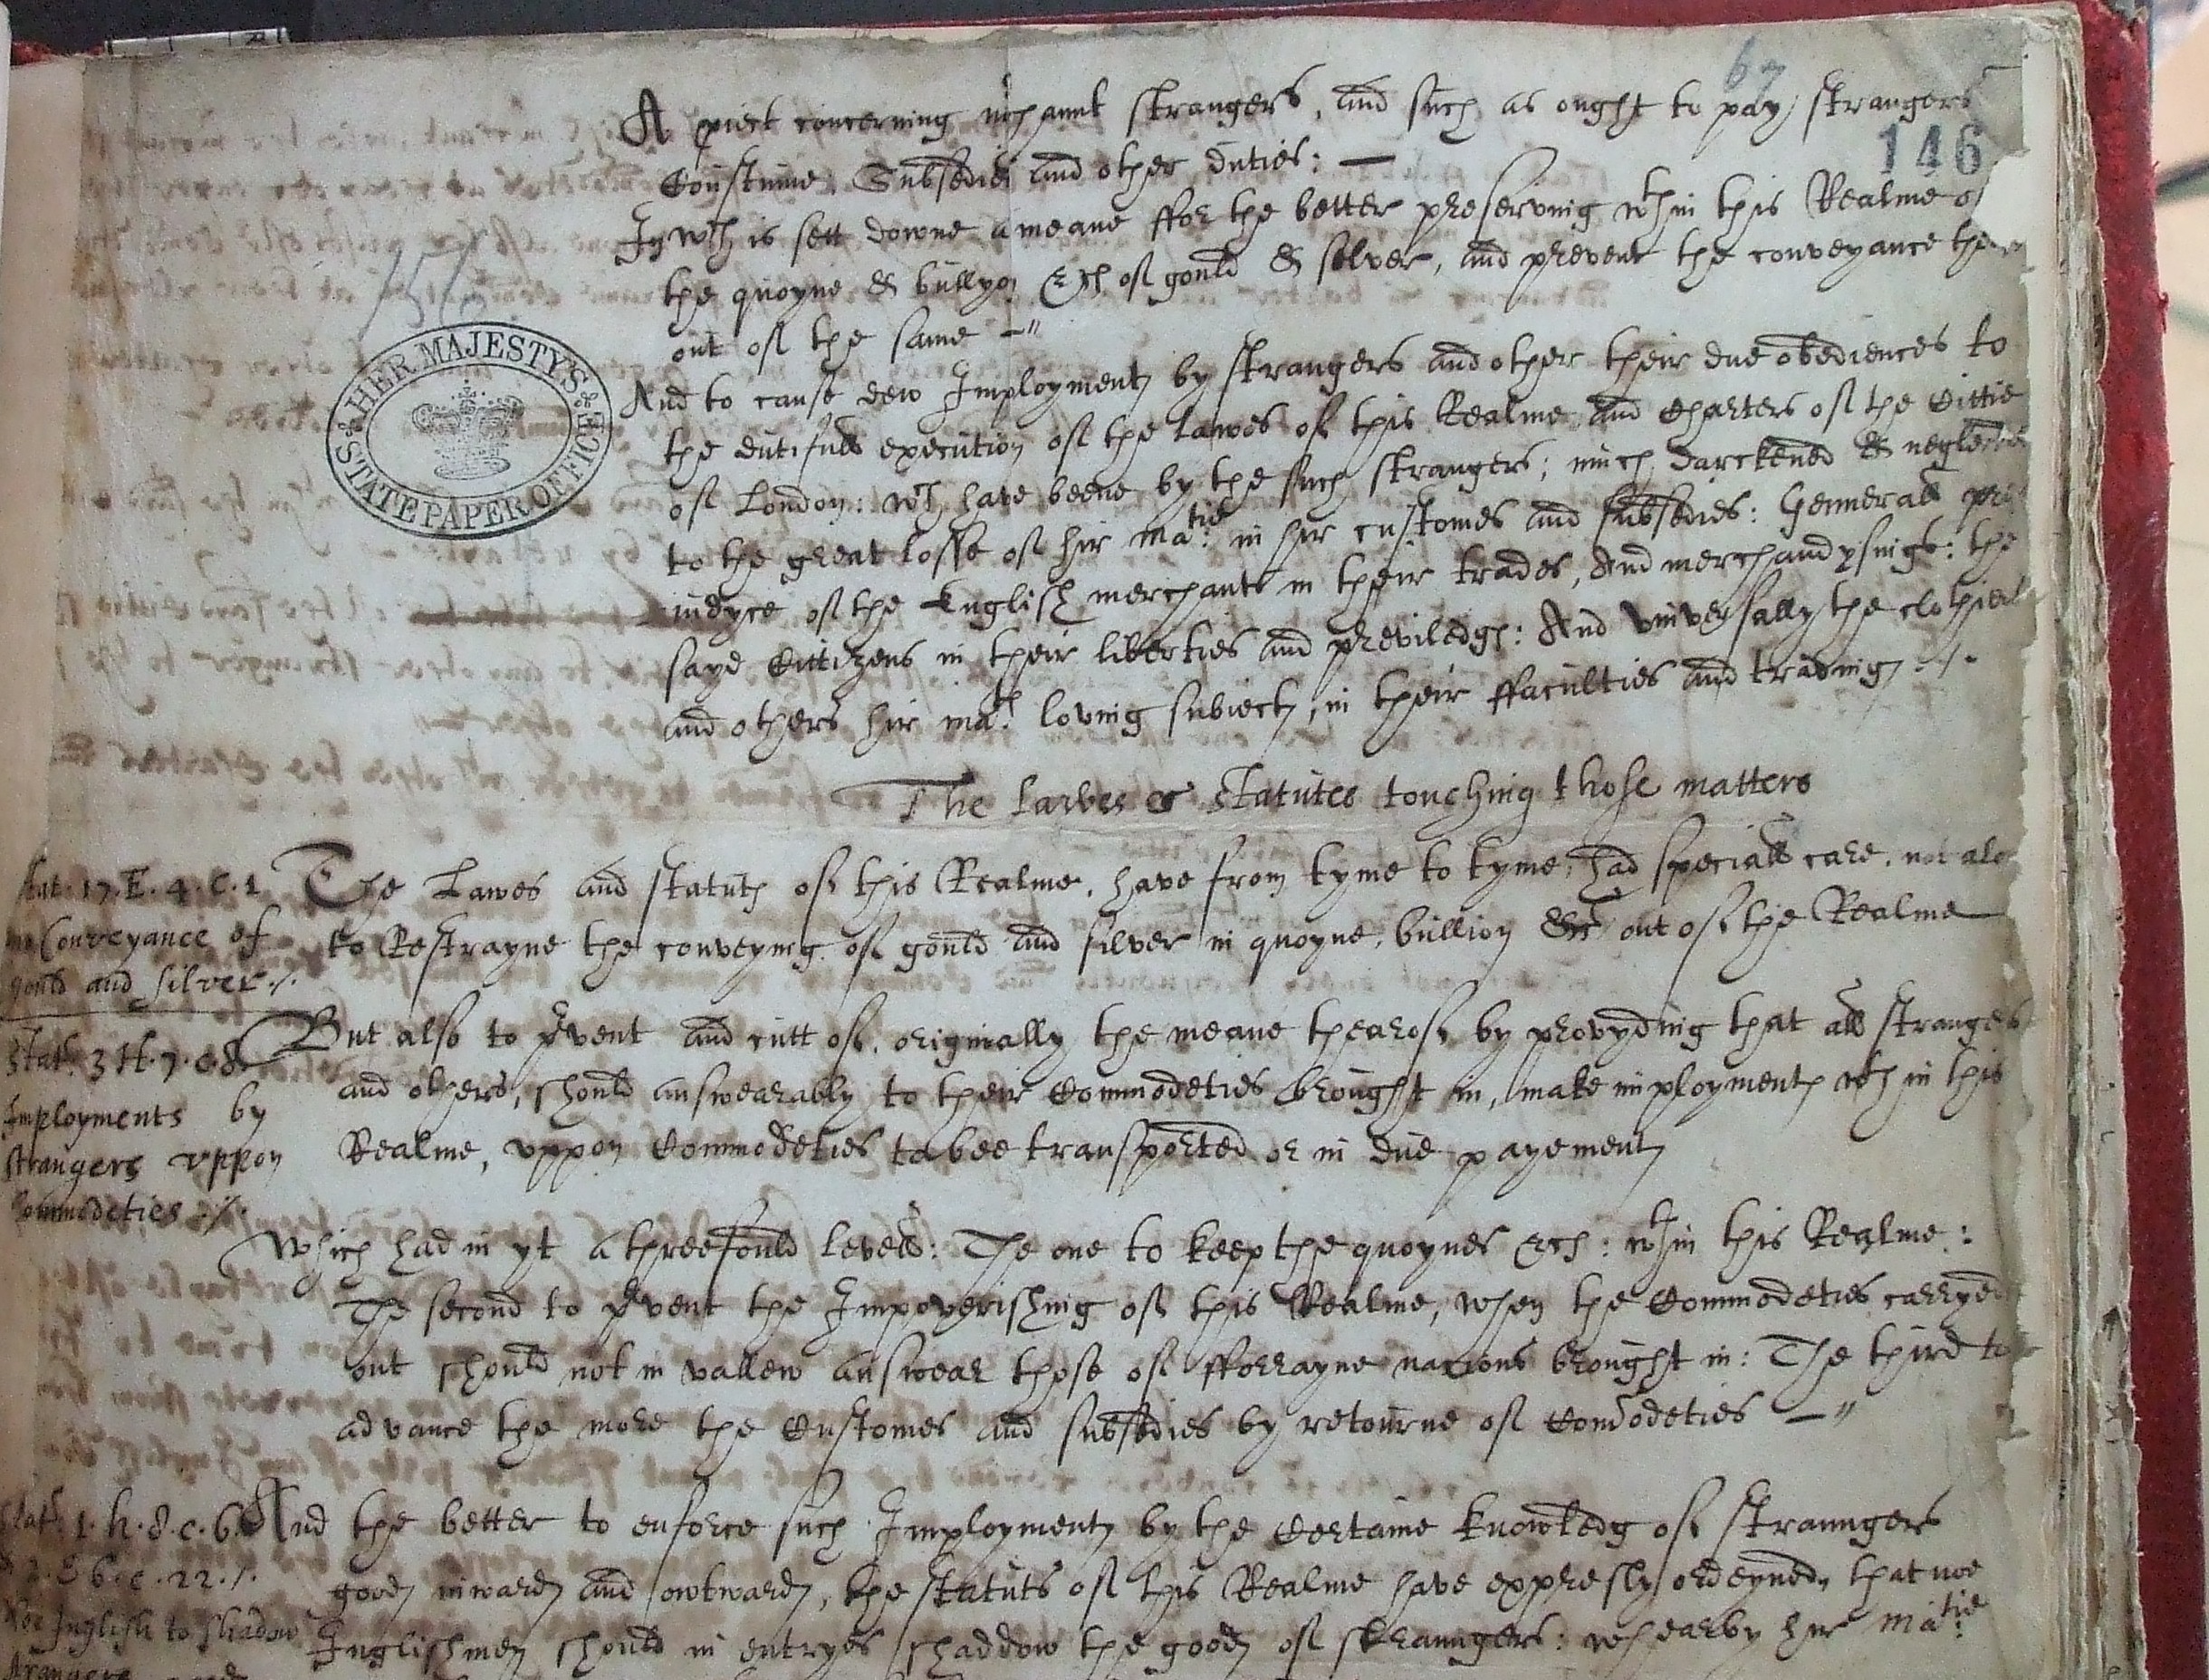 67
A piect concerning mchannt strangers, and such as ought to pay strangers
146
Coustume, Subsedie and other duties:
In wch is sett downe a meane ffor the better preserving wthin this Realme of
the quoyne & bullyon &c of gould & silver, and prevent the conveyance
out of the same
HER MAJESTY'S STATE PAPER OFFICE
And to cause dew Imployments by strangers and other their due obediences to
the dutifull execution of the Lawes of this Realme and Charters of the Cittie
of London: wch have beene by the such strangers; much darckened & neglected
to the great losse of hir matie: in hir customes and subsedies: Gennerall pre
iudyce of the English merchants in their trades, And merchandysings: the
sayd Cittizens in their liberties and previledgs: And vniversally the clothiers
and others hir mats loving subiects, in their ffaculties and trading
The Lawes & Statutes touching those matters
Stat. 17. E. 4. C. 1
no Conveyance of
gould and silver
The Lawes and statuts of this Realme, have from tyme to tyme, had speciall care, not alo
to Restrayne the conveying of gould and silver in quoyne, bullion &c out of the Realme
Stat: 3 H. 7. c. 8
Imployments by
strangers vppon
Commodeties
But also to pvent and cutt of, originally the meane thearof, by provyding that all strangers
and others, should answearably to their Commodeties brought in, make imployments wthin this
Realme, vppon Commodeties to bee transported or in due payements
Which had in yt a threefould levell: The one to keep the quoynes &c: wthin this Realme:
The second to pvent the Impoverishing of this Realme, when the Commodeties carryed
out should not in vallew answear those of fforrayne nacions brought in: The third to
advance the more the Customes and subsedies by retourne of Comodeties
Stat: 1. h. 8. c. 6
2. E 6. c. 22
Noe Inglish to shadow
strangers
And the better to enforce such Imployments by the Certaine knowledg of straungers
goods inwards and owtwards, the statuts of this Realme have expresly ordeyned, that noe
Inglishmen should in entryes shaddow the goods of straungers: whearby hir matie: